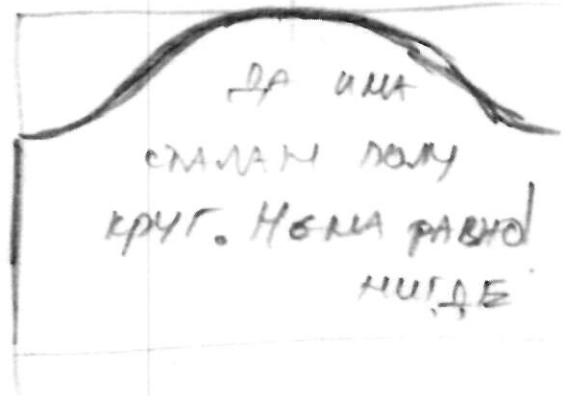 ДА ИМА
СТАЛАН ПОЛУ
КРУГ. НЕМА РАВНО!
НИГДЕ